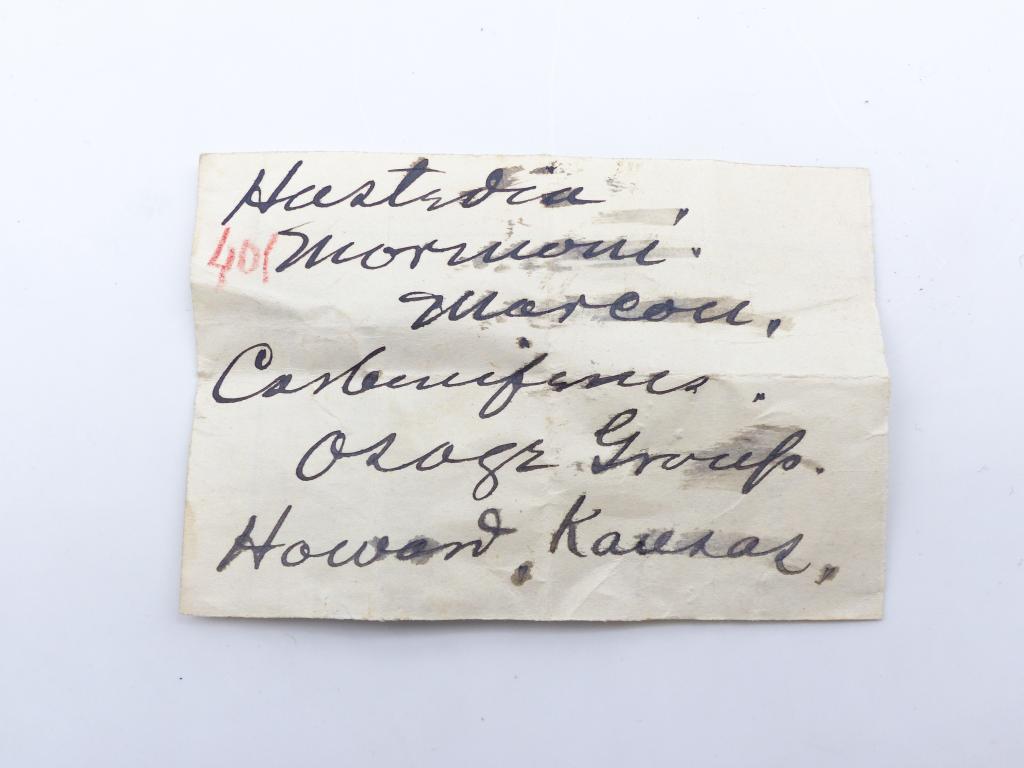 Hustedia
401 Mormoni.
Marcou.
Carboniferous.
Osage Group.
Howard, Kansas.